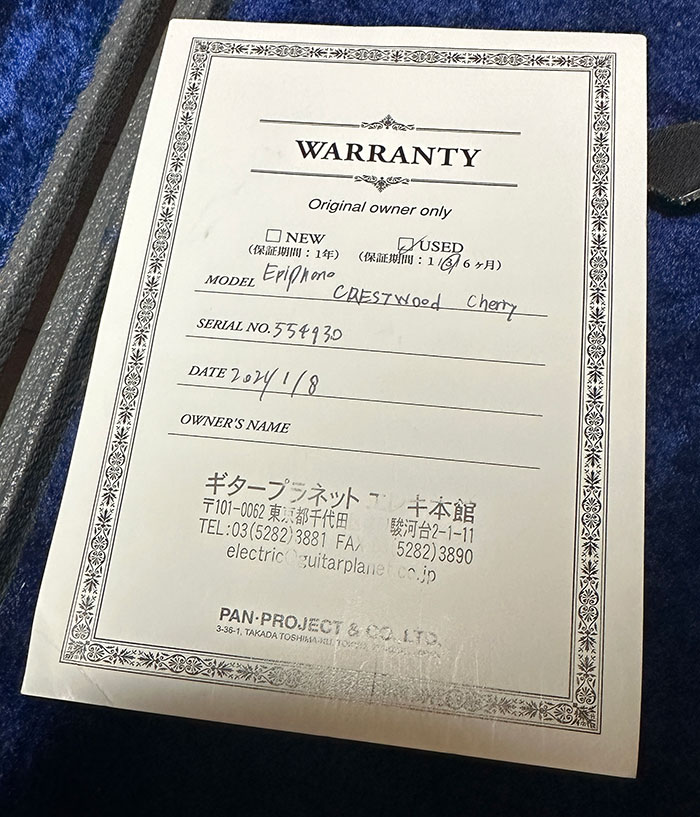 WARRANTY
Original owner only
□ NEW ☑ USED
(保証期間：1年) (保証期間：1/3/6ヶ月)
MODEL Epiphone
CRESTWOOD Cherry
SERIAL NO. 554930
DATE 2024/1/8
OWNER'S NAME
ギタープラネット エレキ本館
〒101-0062 東京都千代田 駿河台2-1-11
TEL:03(5282)3881 FAX 5282)3890
electric guitarplanet.co.jp
PAN·PROJECT & CO. LTD.
3-36-1, TAKADA TOSHIMA-KU, TOKYO